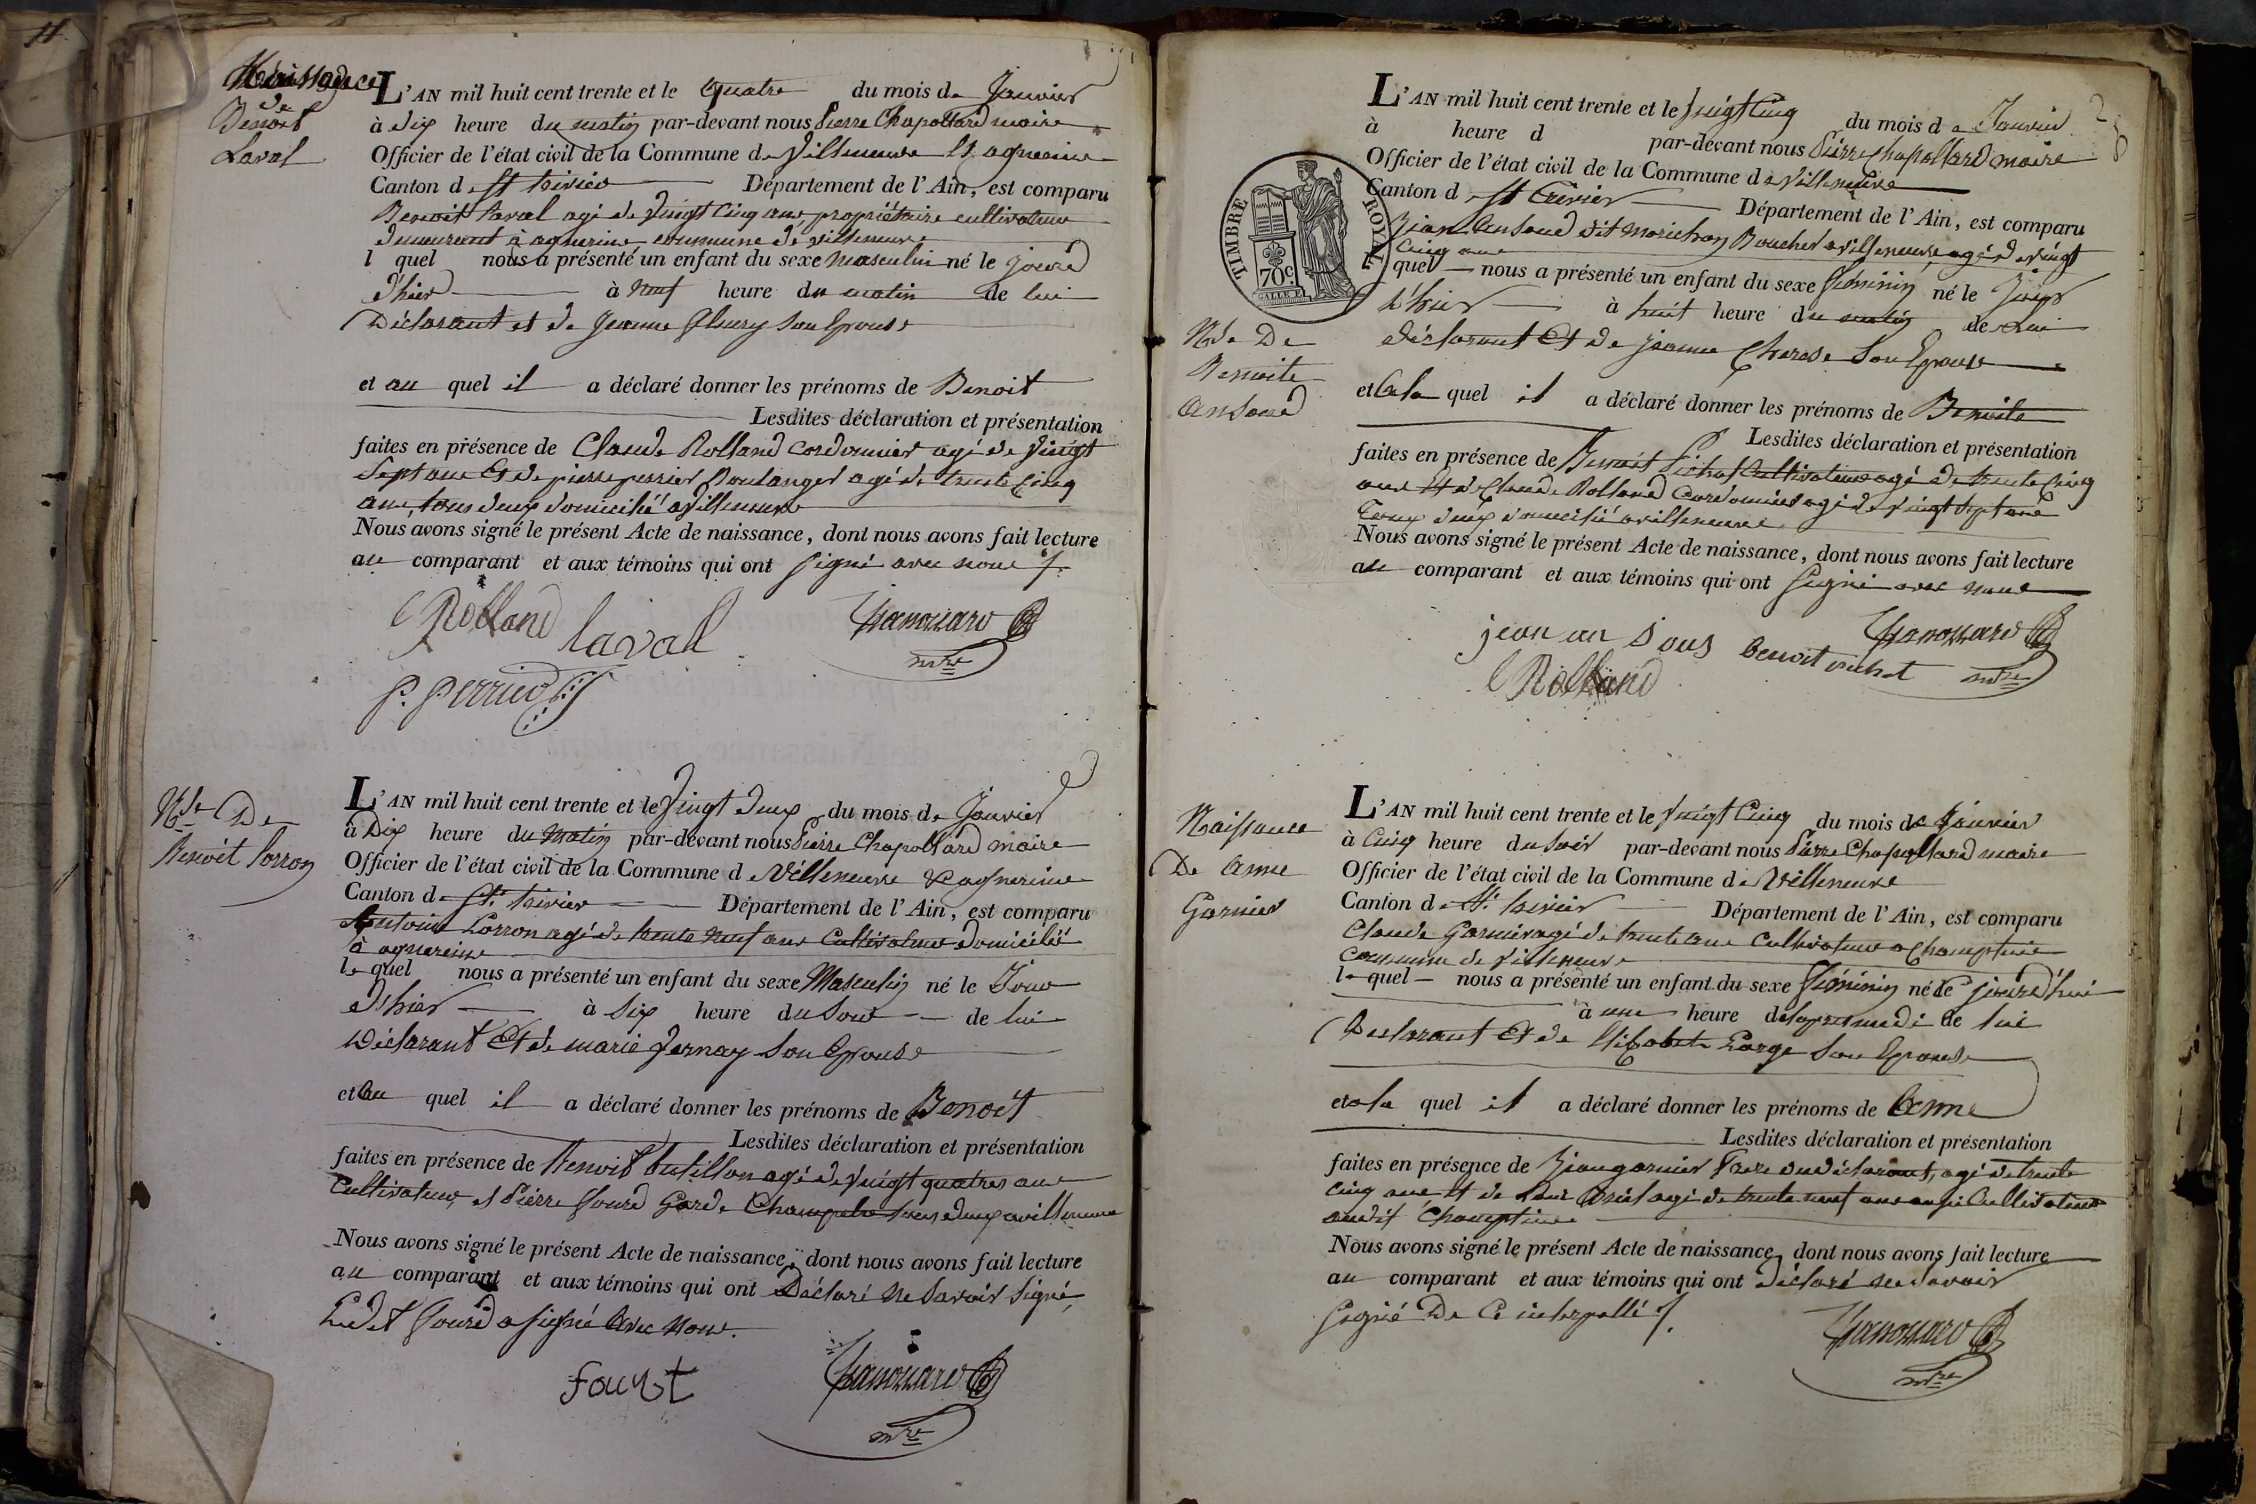 Naissance
de
Benoit
Laval
L'AN mil huit cent trente et le quatre du mois de Janvier
à dix heure du matin par-devant nous Pierre Chapollard maire
Officier de l'état civil de la Commune de Villeneuve et agnereins
Canton de St trivier Département de l'Ain, est comparu
Benoit Laval agé de vingt cinq ans, propriétaire cultivateur
demeurant à agnereins commune de villeneuve
l quel nous a présenté un enfant du sexe masculin né le jour
d'hier à neuf heure du matin de lui
Déclarant et de Jeanne fleury son Epouse
et au quel il a déclaré donner les prénoms de Benoit
Lesdites déclaration et présentation
faites en présence de Claude Rolland cordonnier agé de vingt
sept ans Et de pierre perrier Boulanger agé de trente cinq
ans, tous deux domicilié a villeneuve
Nous avons signé le présent Acte de naissance, dont nous avons fait lecture
au comparant et aux témoins qui ont signé avec nous
Rolland laval Chapollard
mre
P. Perrier
Nce De
Benoit Lorron
L'AN mil huit cent trente et le Vingt deux du mois de Janvier
à Dix heure du matin par-devant nous Pierre Chapollard maire
Officier de l'état civil de la Commune de Villeneuve & agnereins
Canton de St. trivier Département de l'Ain, est comparu
Antoine Lorron agé de trente neuf ans Cultivateur domicilié
à agnereins
le quel nous a présenté un enfant du sexe Masculin né le Jour
d'hier à six heure du soir de lui
Déclarant Et de marie Jernay son Epouse
et au quel il a déclaré donner les prénoms de Benoit
Lesdites déclaration et présentation
faites en présence de Benoit butillon agé de vingt quatres ans
Cultivateur, et Pierre Gourd Garde Champetre tous deux a villeneuve
Nous avons signé le présent Acte de naissance, dont nous avons fait lecture
au comparant et aux témoins qui ont Déclaré ne savoir signé,
Ledit Gourd a signé avec nous.
Chapollard
mre
L'AN mil huit cent trente et le vingt Cinq du mois de Janvier
à heure d par-devant nous Pierre Chapollard maire
Officier de l'état civil de la Commune de Villeneuve
Canton d St Trivier Département de l'Ain, est comparu
TIMBRE ROYAL
70c
Jean ansoud dit Boucher a villeneuve, agé de vingt
Cinq ans
quel nous a présenté un enfant du sexe féminin né le jour
d'hier à huit heure du matin de lui
déclarant Et de jeanne Son Epouse
Nce De
Benoite
Ansoud
et a la quel il a déclaré donner les prénoms de Benoite
Lesdites déclaration et présentation
faites en présence de Benoit Cultivateur agé de trente Cinq
ans Et de Claude Rolland Cordonnier agé de vingt sept ans
Tous deux domicilié a villeneuve
Nous avons signé le présent Acte de naissance, dont nous avons fait lecture
au comparant et aux témoins qui ont signé avec nous
jean an sous Benoit Chapollard
mre
Rolland
Naissance
De anne
Garnier
L'AN mil huit cent trente et le vingt Cinq du mois de Janvier
à Cinq heure du soir par-devant nous Pierre Chapollard maire
Officier de l'état civil de la Commune de Villeneuve
Canton de St. trivier Département de l'Ain, est comparu
Claude Garnier agé de trente ans Cultivateur a Champtein
commune de villeneuve
le quel nous a présenté un enfant du sexe féminin né le jourd'hui
à une heure de lapres medi de lui
Declarant Et de Elisabete Large son Epouse
et a la quel il a déclaré donner les prénoms de Anne
Lesdites déclaration et présentation
faites en présence de Jean garnier frere du déclarant, agé de trente
cinq ans, Et de agé de trente neuf ans aussi Cultivateur
audit Champtein
Nous avons signé le présent Acte de naissance, dont nous avons fait lecture
au comparant et aux témoins qui ont déclaré ne savoir
signé De Ce interpellé
Chapollard
mre